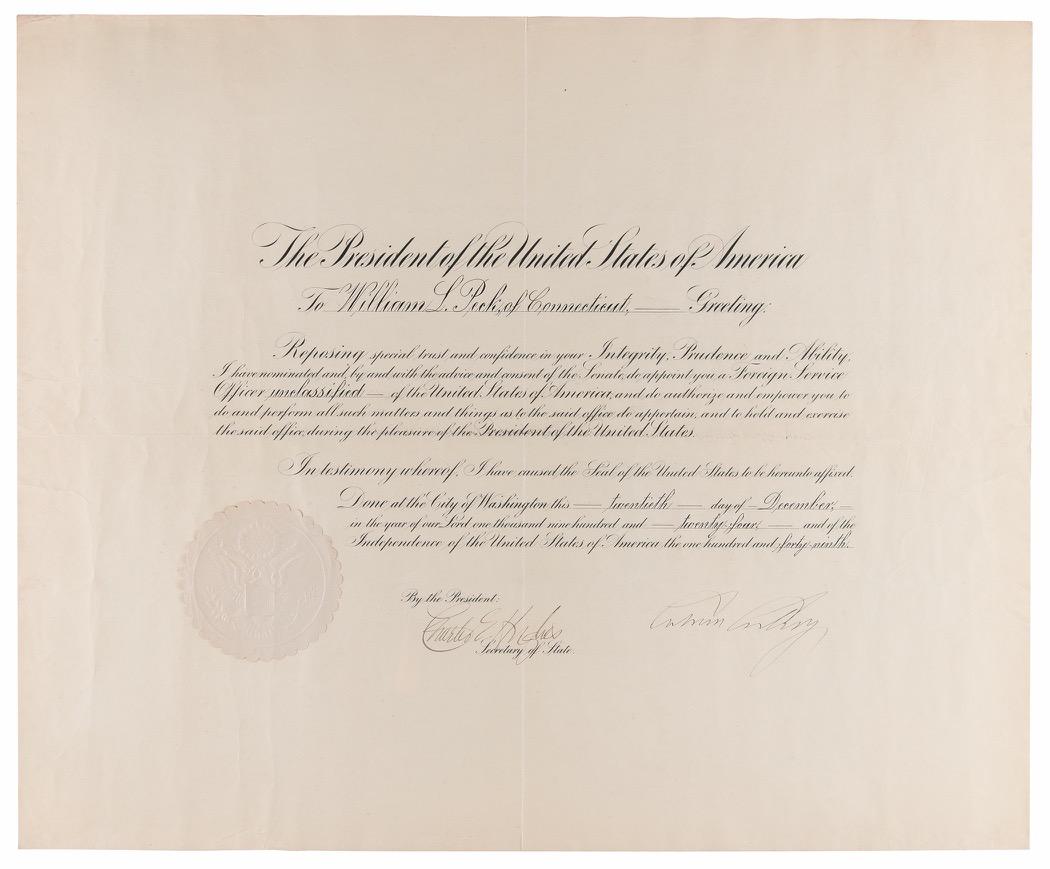 The President of the United States of America
To William L. Peck, of Connecticut, Greeting:
Reposing special trust and confidence in your Integrity, Prudence and Ability,
I have nominated and, by and with the advice and consent of the Senate, do appoint you a Foreign Service
Officer unclassified of the United States of America, and do authorize and empower you to
do and perform all such matters and things as to the said office do appertain, and to hold and exercise
the said office, during the pleasure of the President of the United States.
In testimony whereof, I have caused the Seal of the United States to be hereunto affixed.
Done at the City of Washington this twentieth day of December,
in the year of our Lord one thousand nine hundred and twenty-four, and of the
Independence of the United States of America the one hundred and forty-ninth.
By the President:
Charles E. Hughes
Calvin Coolidge
Secretary of State.